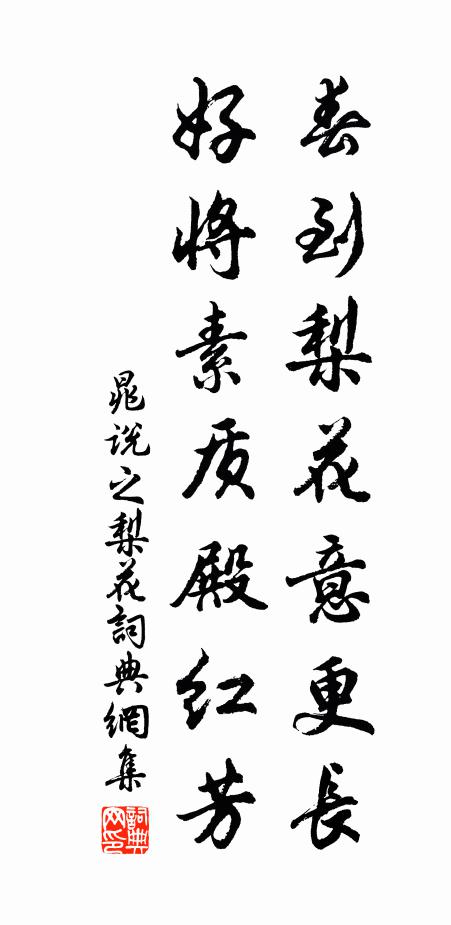 春到梨花意更長
好将素质殿红芳
晁説之梨花詞典網集
詞典网印